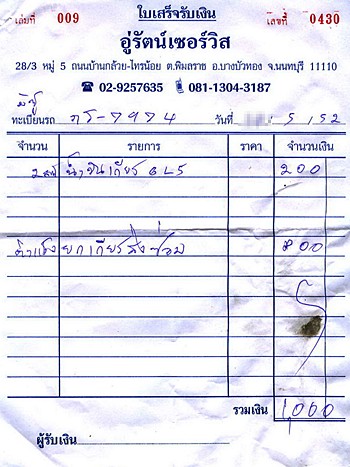 เล่มที่ 009 ใบเสร็จรับเงิน เลขที่ 0430
อู่รัตน์เซอร์วิส
28/3 หมู่ 5 ถนนบ้านกล้วย-ไทรน้อย ต.พิมลราช อ.บางบัวทอง จ.นนทบุรี 11110
☎ 02-9257635 081-1304-3187
ทะเบียนรถ กร-7974 วันที่ 5 / 52
จำนวน รายการ ราคา จำนวนเงิน
2 น้ำมันเกียร์ GL5 200
ค่าแรง ยกเกียร์ส่งซ่อม 800
รวมเงิน 1,000
ผู้รับเงิน